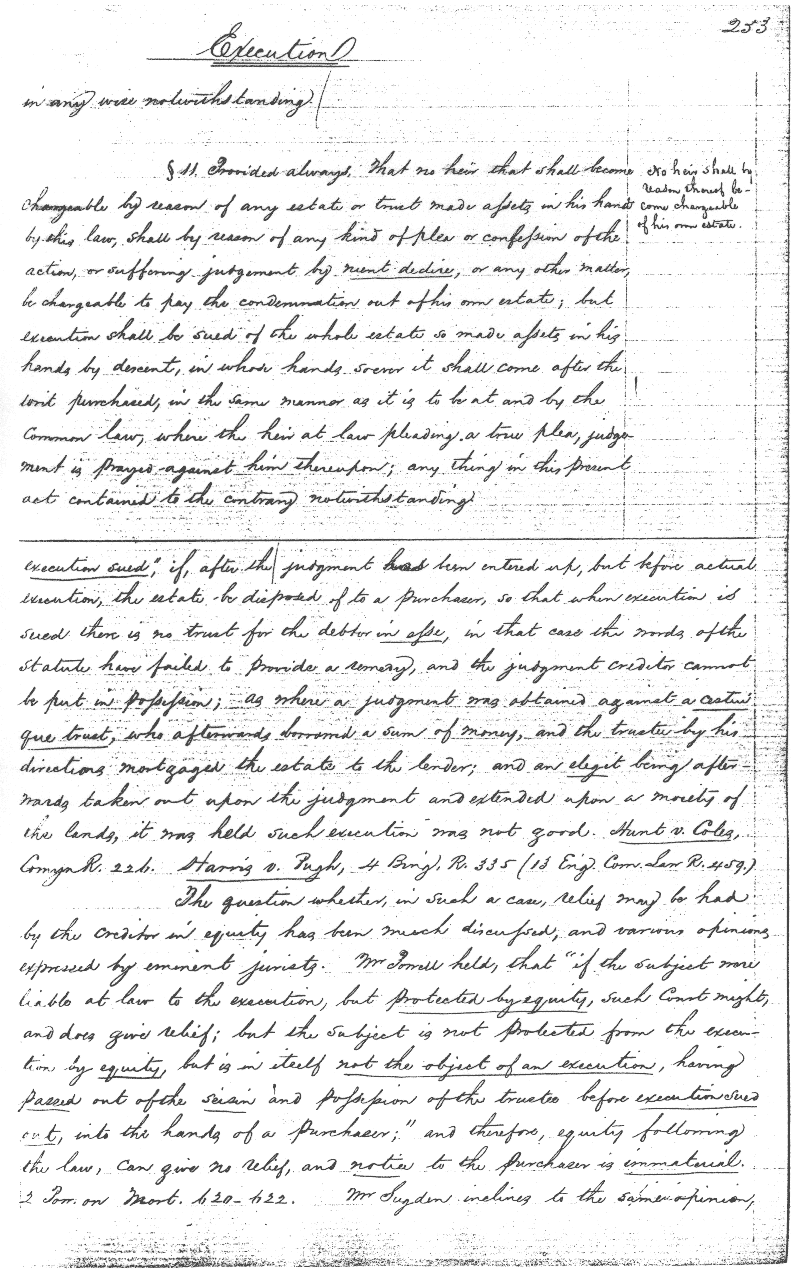 253
Execution
in any wise notwithstanding.
§ 11. Provided always, That no heir that shall become
chargeable by reason of any estate or trust made assets in his hands
by this law, shall by reason of any kind of plea or confession of the
action, or suffering judgement by nient dedire, or any other matter,
be chargeable to pay the condemnation out of his own estate; but
execution shall be sued of the whole estate so made assets in his
hands by descent, in whose hands soever it shall come after the
writ purchased, in the same manner as it is to be at and by the
Common law, where the heir at law pleading a true plea, judge-
ment is prayed against him thereupon; any thing in this present
act contained to the contrary notwithstanding.
No heir shall by
reason thereof be-
come chargeable
of his own estate.
execution sued", if, after the judgment had been entered up, but before actual
execution, the estate be disposed of to a purchaser, so that when execution is
sued there is no trust for the debtor in esse, in that case the words of the
statute have failed to provide a remedy, and the judgment creditor cannot
be put in possession; as where a judgment was obtained against a cestui
que trust, who afterwards borrowed a sum of money, and the trustee by his
directions mortgaged the estate to the lender; and an elegit being after-
wards taken out upon the judgment and extended upon a moiety of
the lands, it was held such execution was not good. Hunt v. Coles,
Comyn R. 226. Harris v. Pugh, 4 Bing. R. 335 (13 Eng. Com. Law R. 459.)
The question whether, in such a case, relief may be had
by the creditor in equity has been much discussed, and various opinions
expressed by eminent jurists. Mr Powell held, that "if the subject were
liable at law to the execution, but protected by equity, such Court might,
and does give relief; but the subject is not protected from the execu-
tion by equity, but is in itself not the object of an execution, having
passed out of the seisin and possession of the trustee before execution sued
out, into the hands of a purchaser;" and therefore, equity following
the law, can give no relief, and notice to the purchaser is immaterial.
2 Pow. on Mort. 620-622. Mr Sugden inclines to the same opinion,